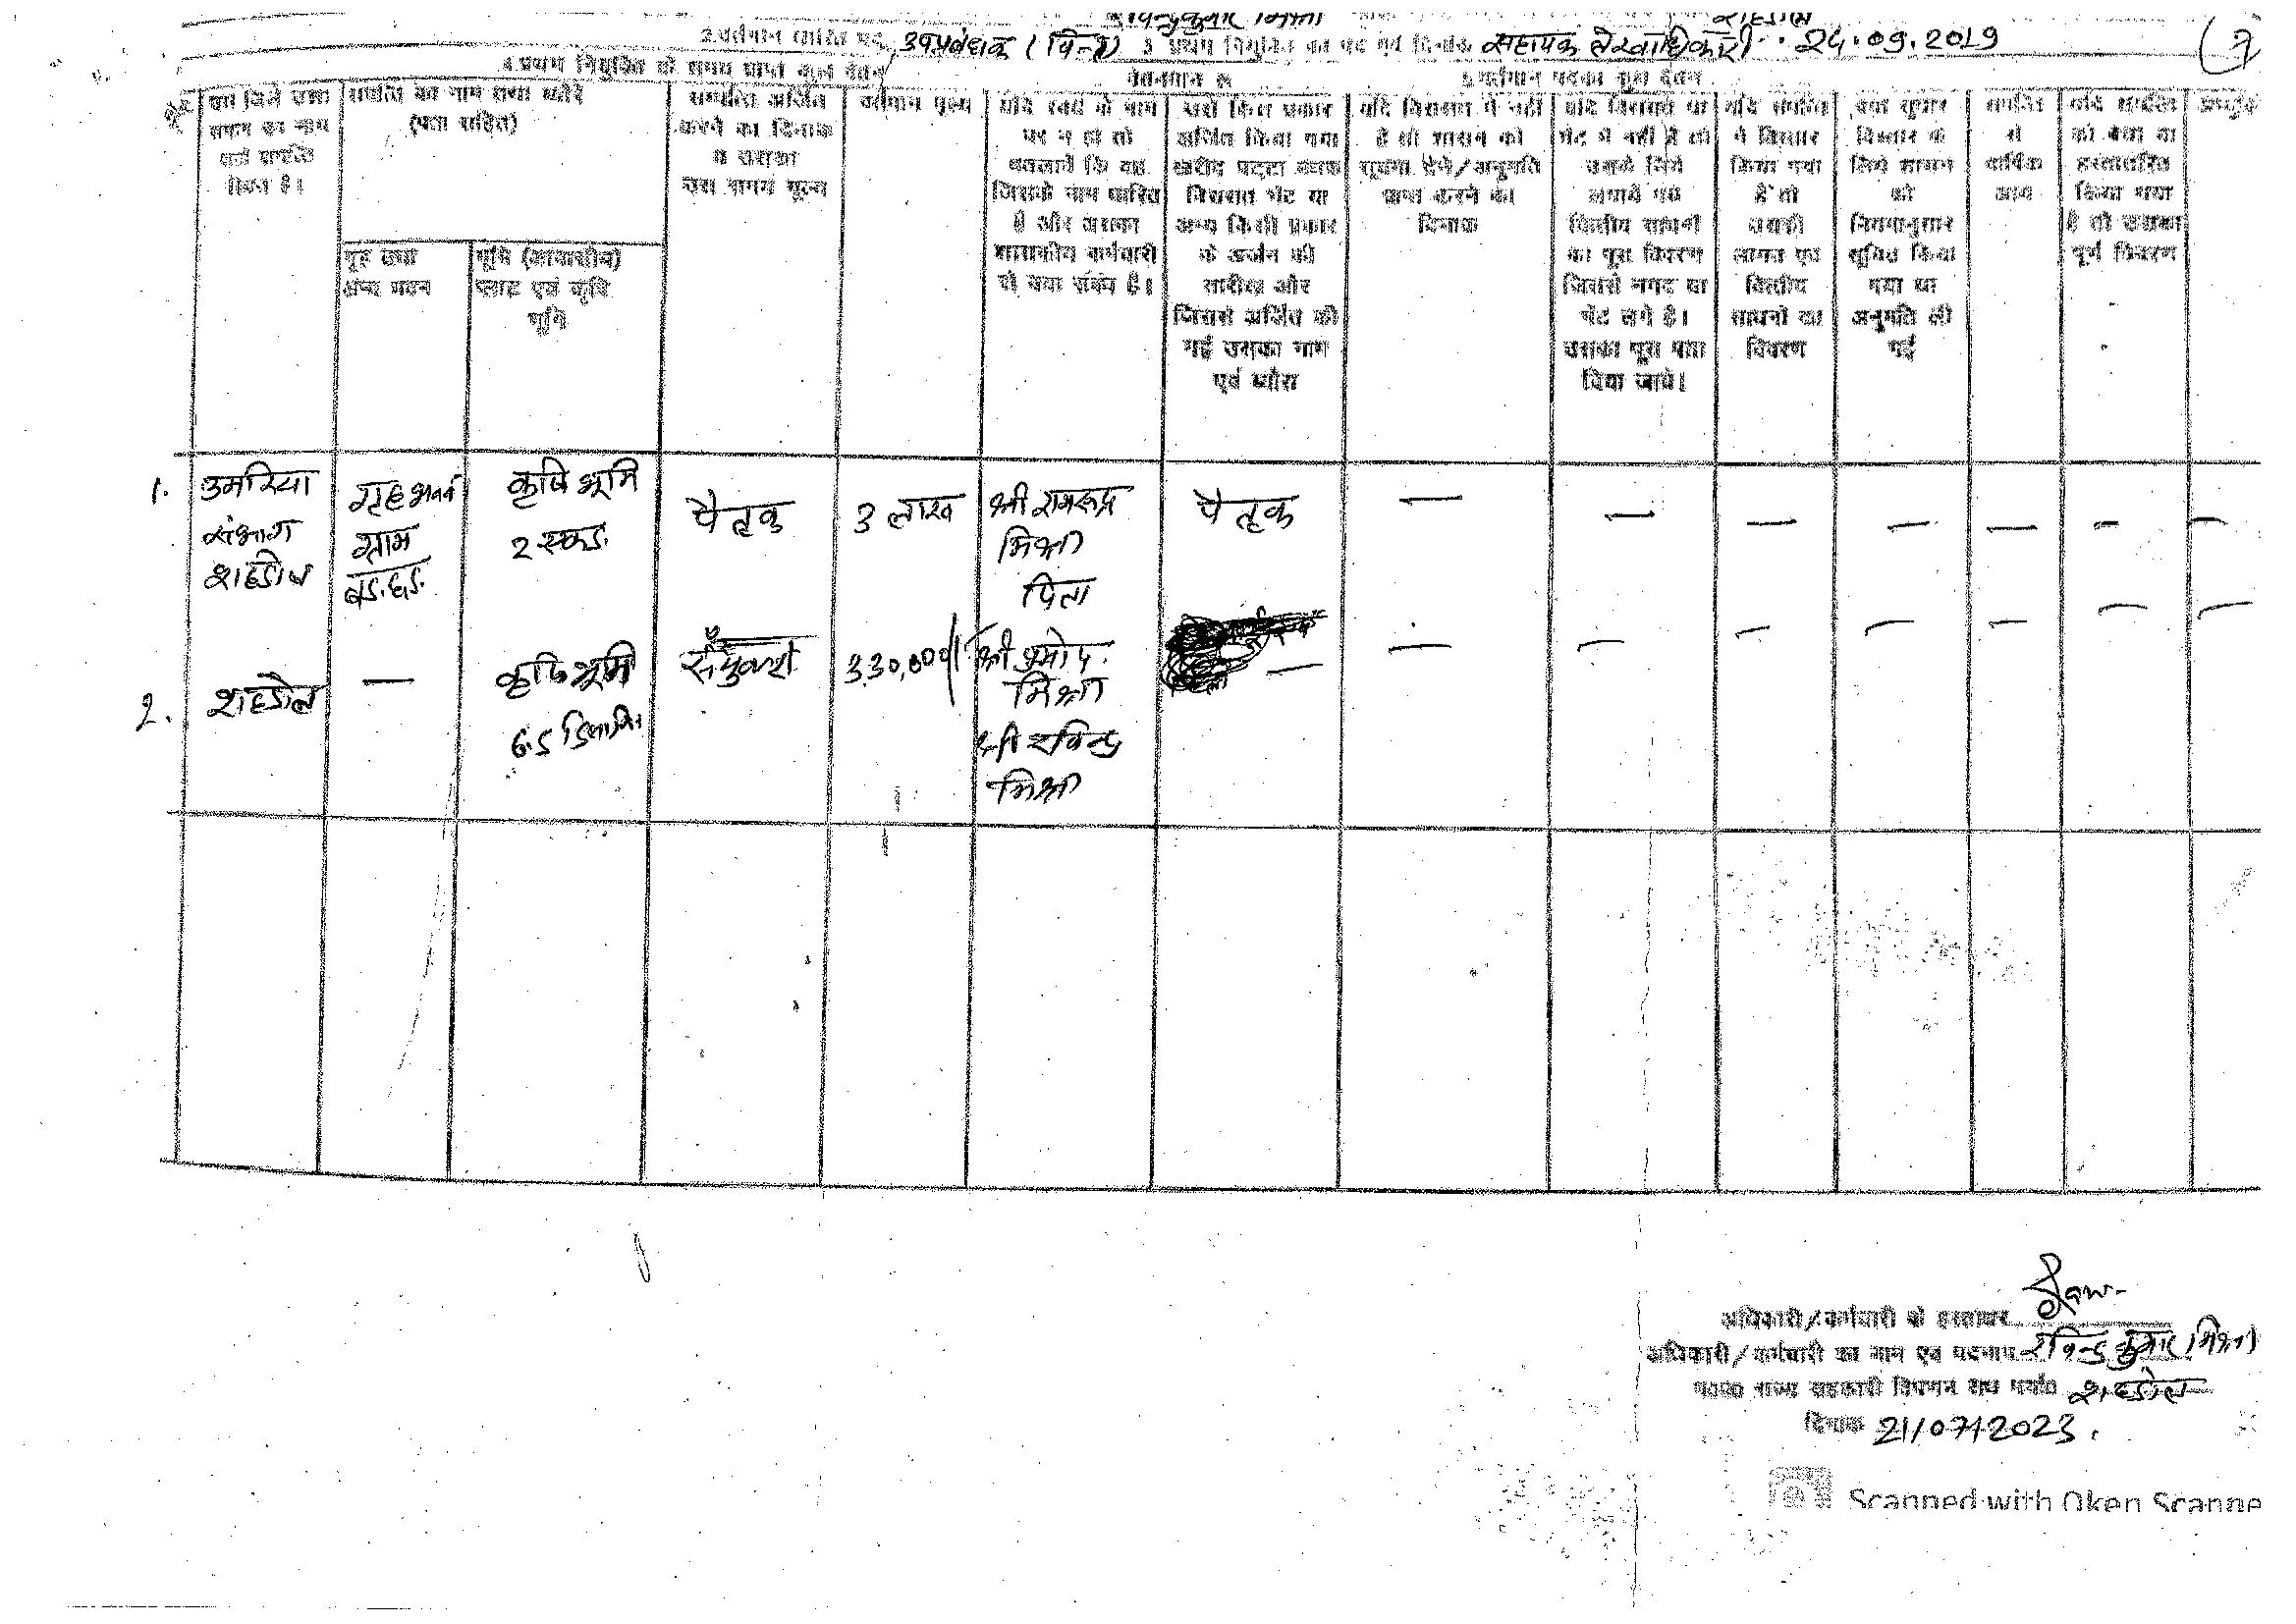 2.वर्तमान धारित पद उपप्रबंधक (वित्त) 3 प्रथम नियुक्ति का पद एवं दिनांक सहायक लेखाधिकारी. 24.09.2019
4.प्रथम नियुक्ति के समय प्राप्त कुल वेतन
वेतनमान रू
5.वर्तमान पदका कुल वेतन
उस जिले तथा
संभाग का नाम
जहाँ सम्पत्ति
स्थित है।
सम्पत्ति का नाम तथा ब्यौरे
(पता सहित)
गृह तथा
अन्य भवन
भूमि (आवासीय)
प्लाट एवं कृषि
भूमि
सम्पत्ति अर्जित
करने का दिनांक
व उसका
उस समय मूल्य
वर्तमान मूल्य
यदि स्वयं के नाम
पर न हो तो
बतलावें कि वह
जिसके नाम धारित
है और उसका
शासकीय कर्मचारी
से क्या संबंध है।
उसे किस प्रकार
अर्जित किया गया
खरीद पट्टा बंधक
विरासत भेंट या
अन्य किसी प्रकार
के अर्जन की
तारीख और
जिससे अर्जित की
गई उसका नाम
एवं ब्यौरा
यदि विरासत में नहीं
है तो शासन को
सूचना देने/अनुमति
प्राप्त करने का
दिनांक
यदि विरासत या
भेंट में नहीं है तो
उसके लिये
लगाये गये
वित्तीय साधनों
का पूरा विवरण
जिससे नगद या
भेंट लगे है।
उसका पूरा पता
दिया जावे।
यदि संपत्ति
में विस्तार
किया गया
है तो
उसकी
लागत एवं
वित्तीय
साधनों का
विवरण
क्या सुधार
विस्तार के
लिये शासन
को
नियमानुसार
सूचित किया
गया था
अनुमति ली
गई
सम्पत्ति
से
वार्षिक
आय
यदि सम्पत्ति
को बेचा या
हस्तांतरित
किया गया
है तो उसका
पूर्ण विवरण
1. उमरिया
संभाग
शहडोल
गृह भवन
ग्राम
कृषि भूमि
2 एकड.
पैतृक
3 लाख
श्री रामरूद्र
मिश्रा
पिता
पैतृक
— — — — — — —
2. शहडोल
—
कृषि भूमि
6.5 डिसमिल
3,30,000/
श्री प्रमोद
मिश्रा
श्री रविन्द्र
मिश्रा
— — — — — — — —
अधिकारी/कर्मचारी के हस्ताक्षर
अधिकारी/कर्मचारी का नाम एवं पदनाम रविन्द्र कुमार मिश्रा
म०प्र० राज्य सहकारी विपणन संघ मर्या० शहडोल
दिनांक 21/07/2023.
Scanned with Oken Scanne